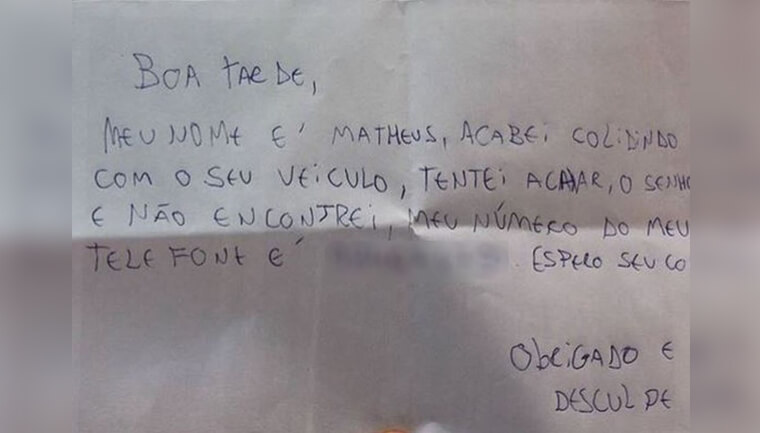 BOA TARDE,
MEU NOME E' MATHEUS, ACABEI COLIDINDO
COM O SEU VEICULO, TENTEI ACHAR, O SENHO
E NÃO ENCONTREI, MEU NÚMERO DO MEU
TELEFONE E' . ESPERO SEU CO
OBRIGADO E
DESCULPE